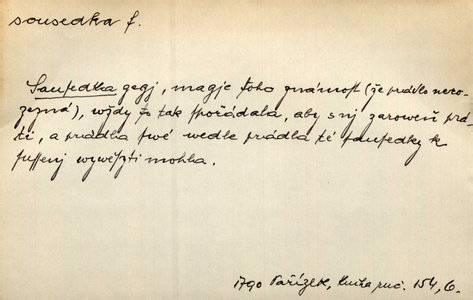 sousedka f.
Sausedka gegj, magje toho známost (že prádlo nero-
zezná), wždy to tak spořádala, aby s nj zaroweň prá-
ti, a prádla swé wedle prádla té sausedky k
sussenj wywěsyti mohla.
1790 Pařízek, Kniha ruč. 154, 6.